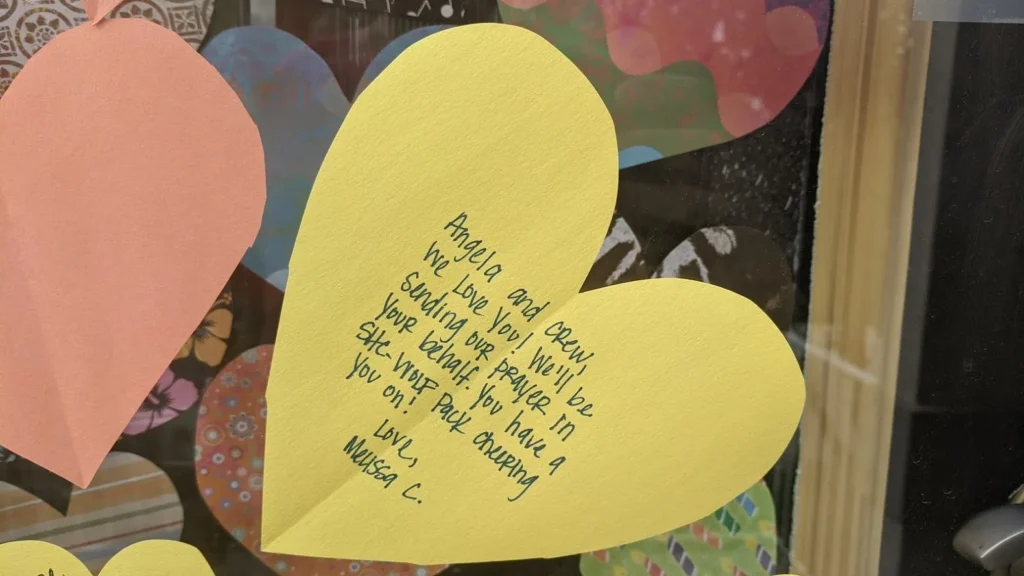 Angela and crew,
We Love You! We'll be
Sending our prayer in
Your behalf. You have a
SHE-Wolf Pack cheering
You on!
Love,
Melissa C.